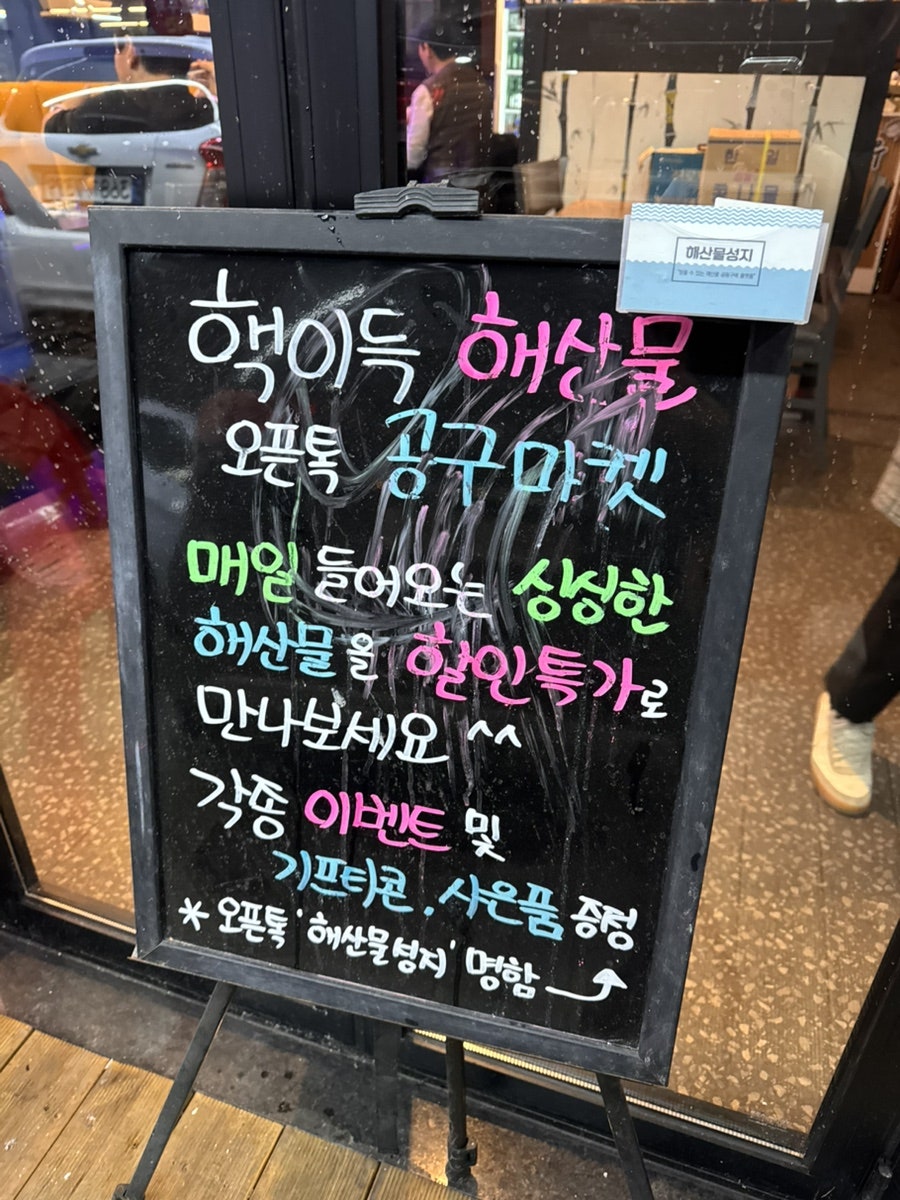 해산물성지
핵이득 해산물
오픈톡 공구마켓
매일 들어오는 싱싱한
해산물을 할인특가로
만나보세요 ^^
각종 이벤트 및
기프티콘, 사은품 증정
* 오픈톡 '해산물성지' 명함